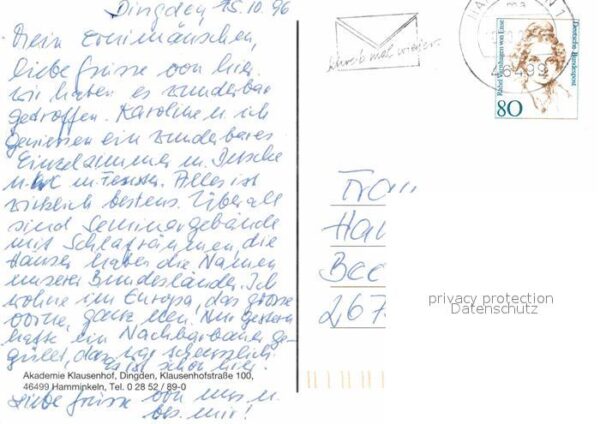 Dingden, 15.10.96
Mein
liebe Grüsse von hier.
wir haben es wunderbar
getroffen. Karoline u. ich
geniessen ein wunderbares
Einzelzimmer m. Dusche
u. WC m. Fenster. Alles ist
wirklich bestens. Überall
sind Seminargebäude
mit Schlafräumen, die
Häuser haben die Namen
unserer Bundesländer. Ich
wohne im Europa, das grosse
vorne, ganz neu. Nur gestern
hatte ein Nachbarbauer ge-
güllt, das war scheusslich.
Es ist schön hier.
Akademie Klausenhof, Dingden, Klausenhofstraße 100,
46499 Hamminkeln, Tel. 0 28 52 / 89-0
Liebe Grüsse von uns u.
bes. mir!
Schreib mal wieder.
46499
Rahel Varnhagen von Ense
Deutsche Bundespost
80
Frau
Han
Bee
267
privacy protection
Datenschutz